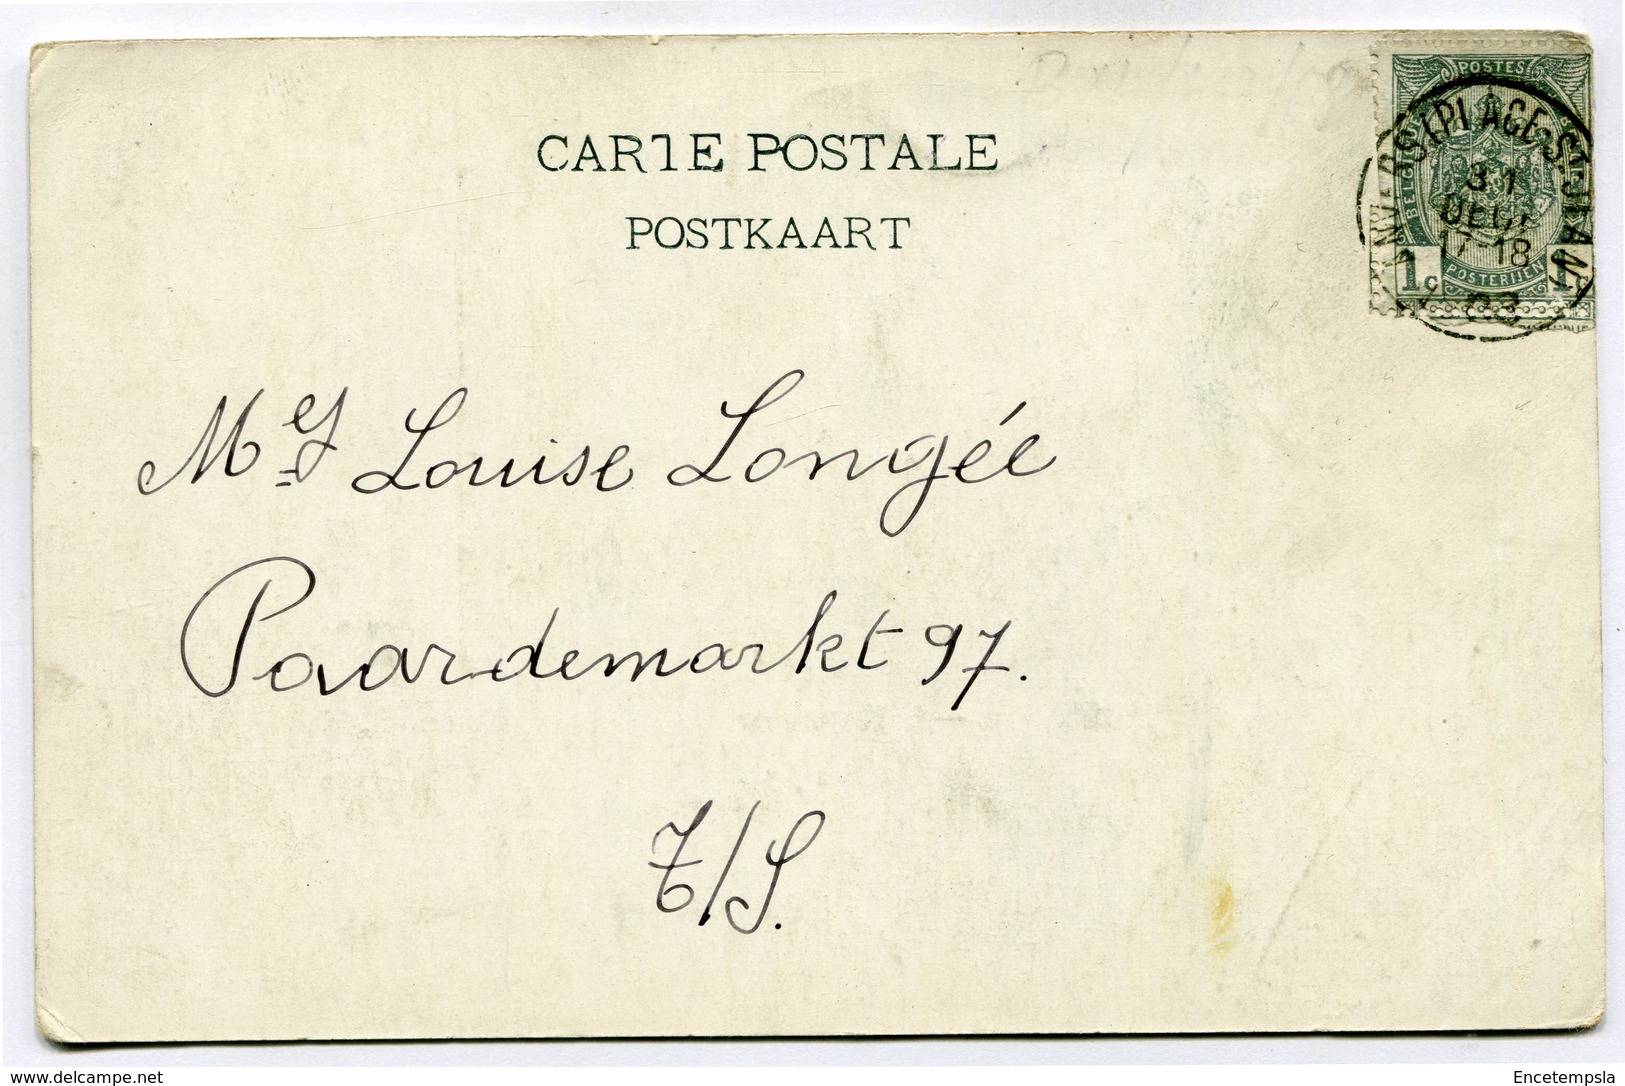 CARTE POSTALE
POSTKAART
POSTES
BELGIQUE
POSTERIJEN
1c 1c
ANVERS (PLACE ST-JEAN)
31
DECE
17-18
Mej Louise Longée
Paardemarkt 97.
T/S.
www.delcampe.net
Encetempsla